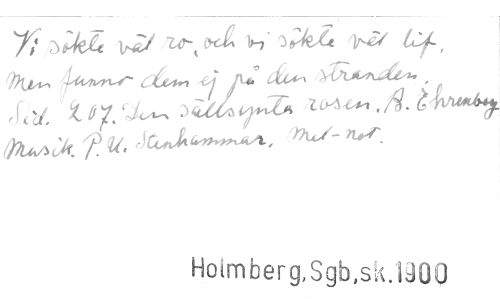 Vi sökte vät ro, och vi sökte vät lif,
men funno dem ej på den stranden.
Sid. 207. Den sällsynta rosen. A. Ehrenberg
Musik. P. U. Stenhammar. Mel-not.
Holmberg,Sgb,sk.1900